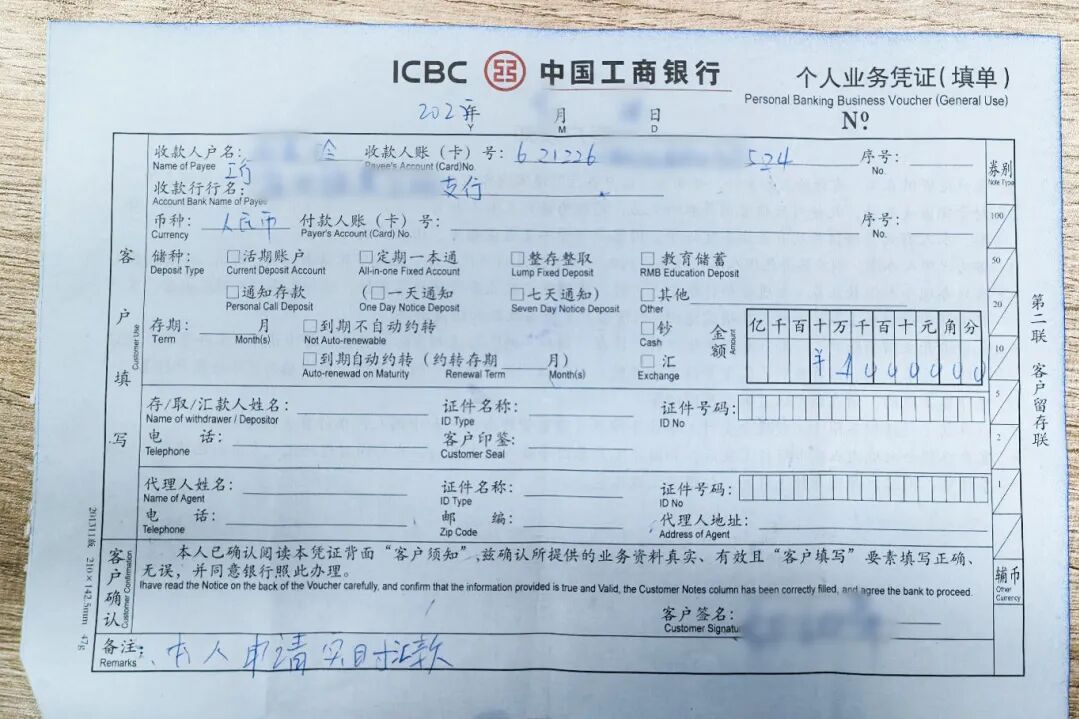 ICBC 中国工商银行
个人业务凭证(填单)
Personal Banking Business Voucher (General Use)
202 年 月 日 Nº
Y M D
收款人户名: 收款人账(卡)号: 621226 524 序号:
Name of Payee Payee's Account (Card)No. No.
收款行行名: 支行
Account Bank Name of Payee
币种: 人民币 付款人账(卡)号: 序号:
Currency Payer's Account (Card) No. No.
储种: □活期账户 □定期一本通 □整存整取 □教育储蓄
Deposit Type Current Deposit Account All-in-one Fixed Account Lump Fixed Deposit RMB Education Deposit
□通知存款 (□一天通知 □七天通知) □其他
Personal Call Deposit One Day Notice Deposit Seven Day Notice Deposit Other
存期: 月 □到期不自动约转 □钞
Term Month(s) Not Auto-renewable Cash
□到期自动约转(约转存期 月) □汇
Auto-renewad on Maturity Renewal Term Month(s) Exchange
金额 Amount
亿 千 百 十 万 千 百 十 元 角 分
¥
存/取/汇款人姓名: 证件名称: 证件号码:
Name of withdrawer / Depositor ID Type ID No
电 话: 客户印鉴:
Telephone Customer Seal
代理人姓名: 证件名称: 证件号码:
Name of Agent ID Type ID No
电 话: 邮 编: 代理人地址:
Telephone Zip Code Address of Agent
客户填写
Customer Use
本人已确认阅读本凭证背面“客户须知”,兹确认所提供的业务资料真实、有效且“客户填写”要素填写正确、
无误,并同意银行照此办理。
Ihave read the Notice on the back of the Voucher carefully, and confirm that the information provided is true and Valid, the Customer Notes column has been correctly filled, and agree the bank to proceed.
客户签名:
Customer Signatu
客户确认
Customer Confirmation
备注: 本人申请实时汇款
Remarks
券别
Note Type
100
50
20
10
5
2
1
辅币
Other Currency
第二联 客户留存联
201311版 210×142.5mm 47g